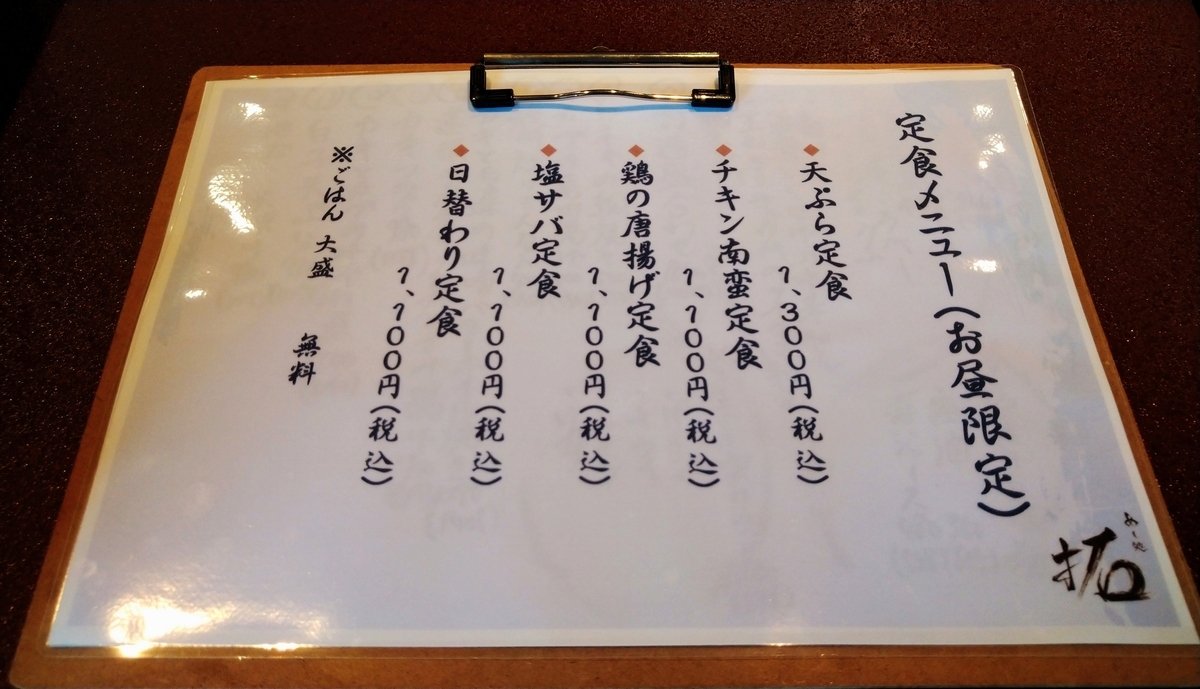 定食メニュー(お昼限定)
天ぷら定食
1、300円(税込)
チキン南蛮定食
1、100円(税込)
鶏の唐揚げ定食
1、100円(税込)
塩サバ定食
1、100円(税込)
日替わり定食
1、100円(税込)
※ごはん 大盛 無料
めし処
拓